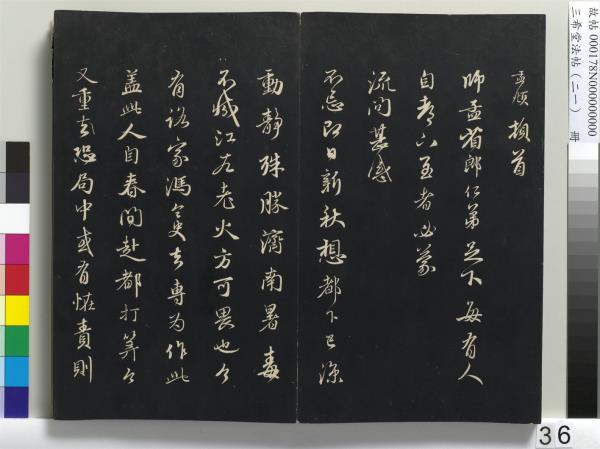 孟頫頓首
師孟省郎仁弟足下每有人
自都下至者必蒙
流問甚感
不忘即日新秋想都下已涼
動靜殊勝濟南暑毒
不减江左老火方可畏也々
有诊家馮㕝去專为作此
盖此人自春間赴都打筭々
又重去恐局中或有恠責則
故帖 000178N000000000
三希堂法帖（二一） 冊
36